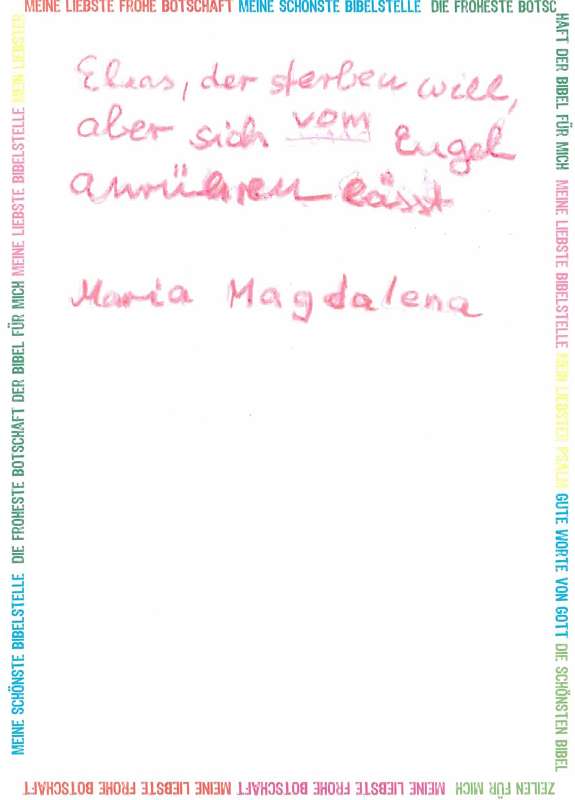 MEINE LIEBSTE FROHE BOTSCHAFT MEINE SCHÖNSTE BIBELSTELLE DIE FROHESTE BOTSC
HAFT DER BIBEL FÜR MICH MEINE LIEBSTE BIBELSTELLE MEIN LIEBSTER PSALM GUTE WORTE VON GOTT DIE SCHÖNSTEN BIBEL
ZEILEN FÜR MICH MEINE LIEBSTE FROHE BOTSCHAFT MEINE LIEBSTE FROHE BOTSCHAFT
MEINE SCHÖNSTE BIBELSTELLE DIE FROHESTE BOTSCHAFT DER BIBEL FÜR MICH MEINE LIEBSTE BIBELSTELLE MEIN LIEBSTER
Elias, der sterben will,
aber sich vom Engel
anrühren lässt
Maria Magdalena